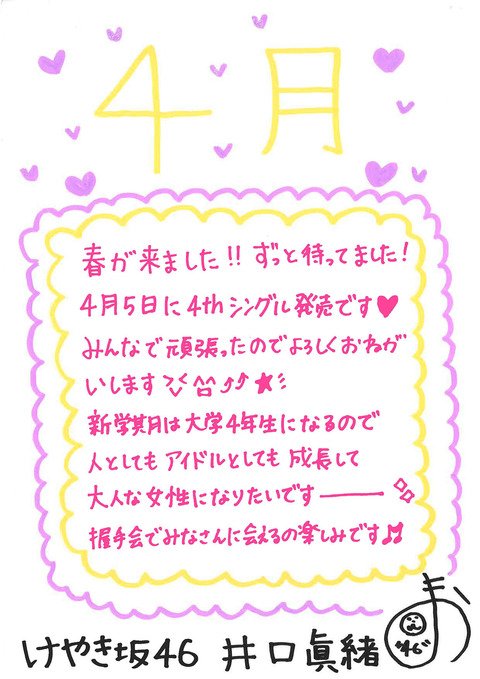 4月
春が来ました!! ずっと待ってました!
4月5日に4thシングル発売です♥
みんなで頑張ったのでよろしくおねが
いします
新学期は大学4年生になるので
人としてもアイドルとしても成長して
大人な女性になりたいですーーー
握手会でみなさんに会えるの楽しみです♫
けやき坂46 井口眞緒
ま
"46"